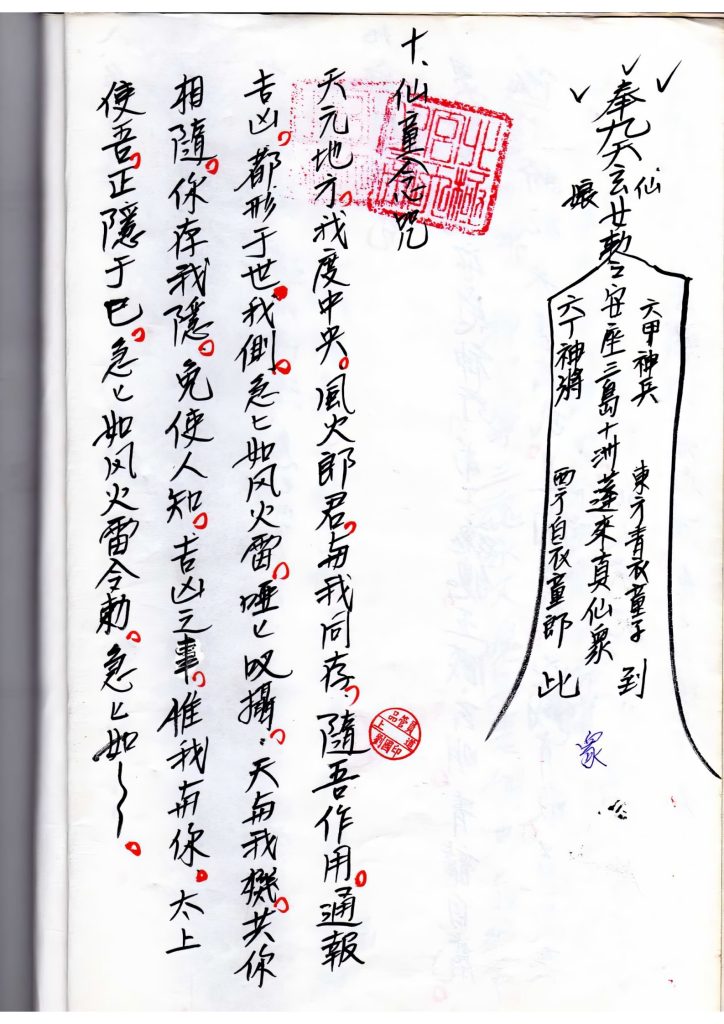 奉九天玄女勅令安座三島十洲蓬來真仙眾
仙
娘
六甲神兵
六丁神將
東方青衣童子
西方白衣童郎
到
此
眾
十、仙童念咒
天元地方。我度中央。風火郎君。与我同存。隨吾作用。通報
吉凶。都形于世。我側。急〻如风火雷。哑〻叹攝。天与我機。共你
相隨。你存我隱。免使人知。吉凶之事。惟我有你。太上
使吾。正隱于巳。急〻如风火雷令勅。急〻如
北極